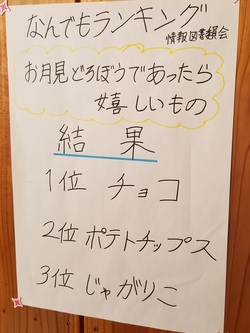 なんでもランキング
情報図書館会
お月見どろぼうであったら
嬉しいもの
結果
1位 チョコ
2位 ポテトチップス
3位 じゃがりこ